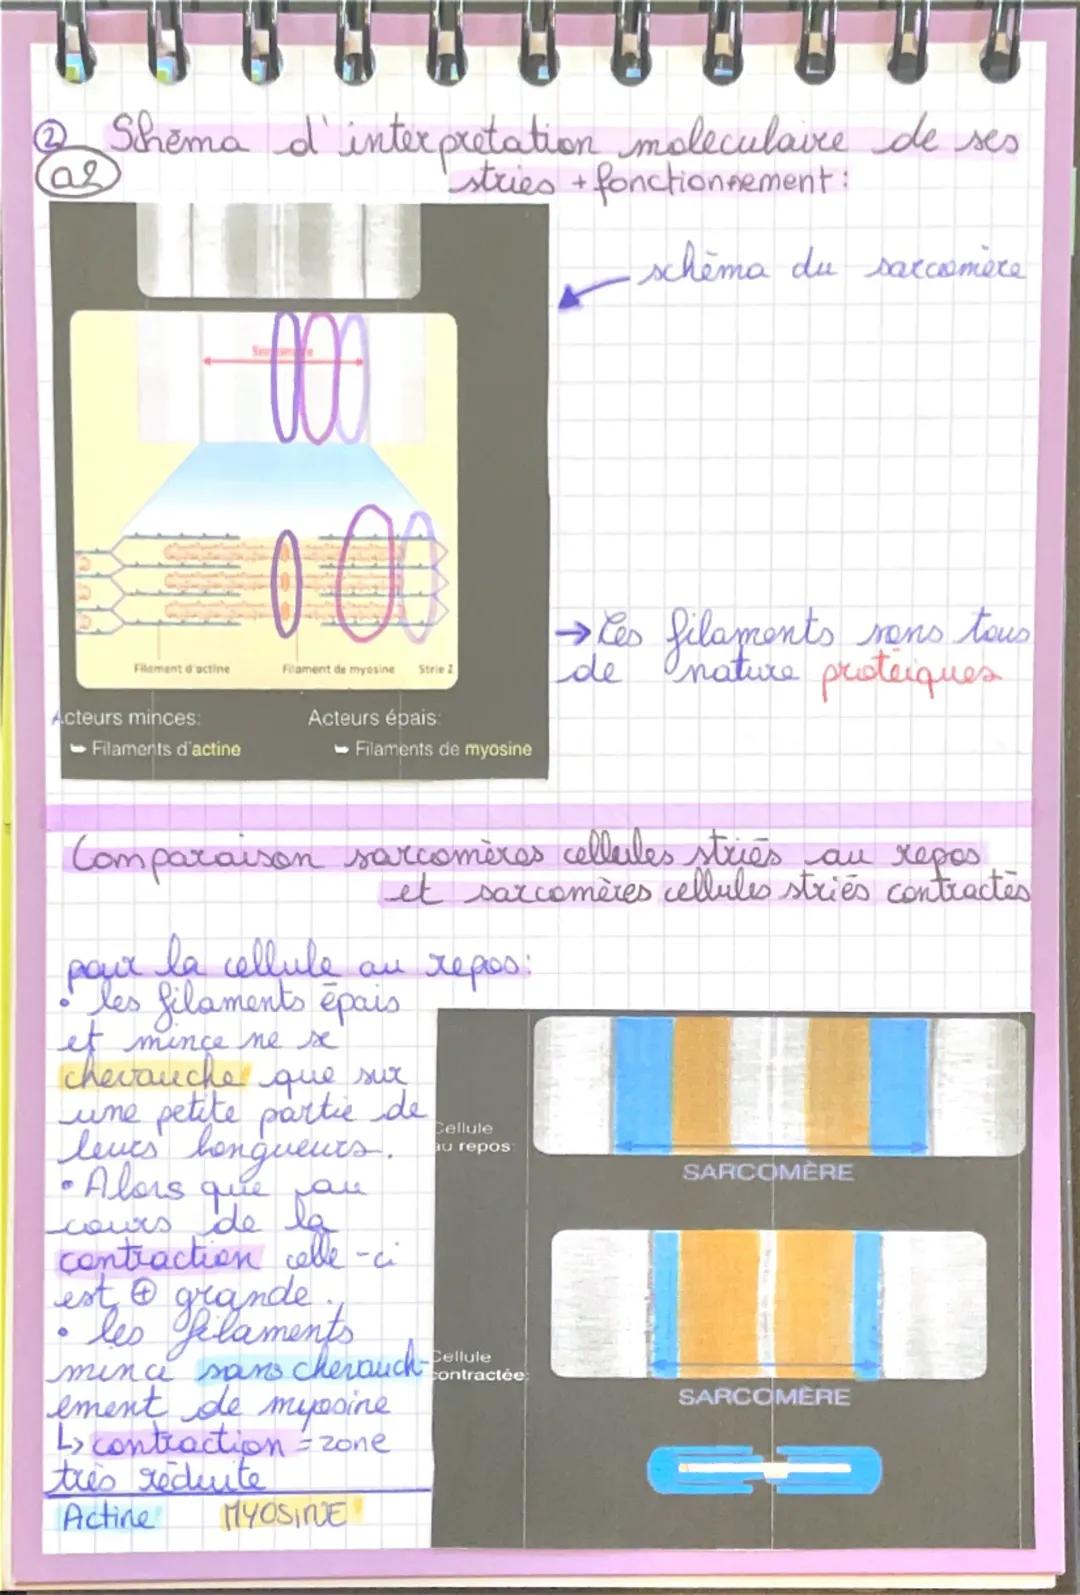 ② Schēma d'interpretation moleculaire de ses
a2 stries + fonctionnement:
schēma du sarcomère
Sarcomère
Filament d'actine Filament de myosine Strie Z
Acteurs minces: Acteurs épais:
Filaments d'actine Filaments de myosine
→ Les filaments sons tous
de nature protéiques
Comparaison sarcomères cellules striés au repos
et sarcomères cellules striés contractés
pour la cellule au repos:
• les filaments épais
et mince ne se
chevauche que sur
une petite partie de
leurs longueurs.
• Alors que au
cours de la
contraction celle-ci
est ⊕ grande.
• les filaments
mince sans chevauch-
ement de myosine
↳ contraction = zone
très réduite
Actine MYOSINE
Cellule
au repos:
SARCOMÈRE
Cellule
contractée:
SARCOMÈRE